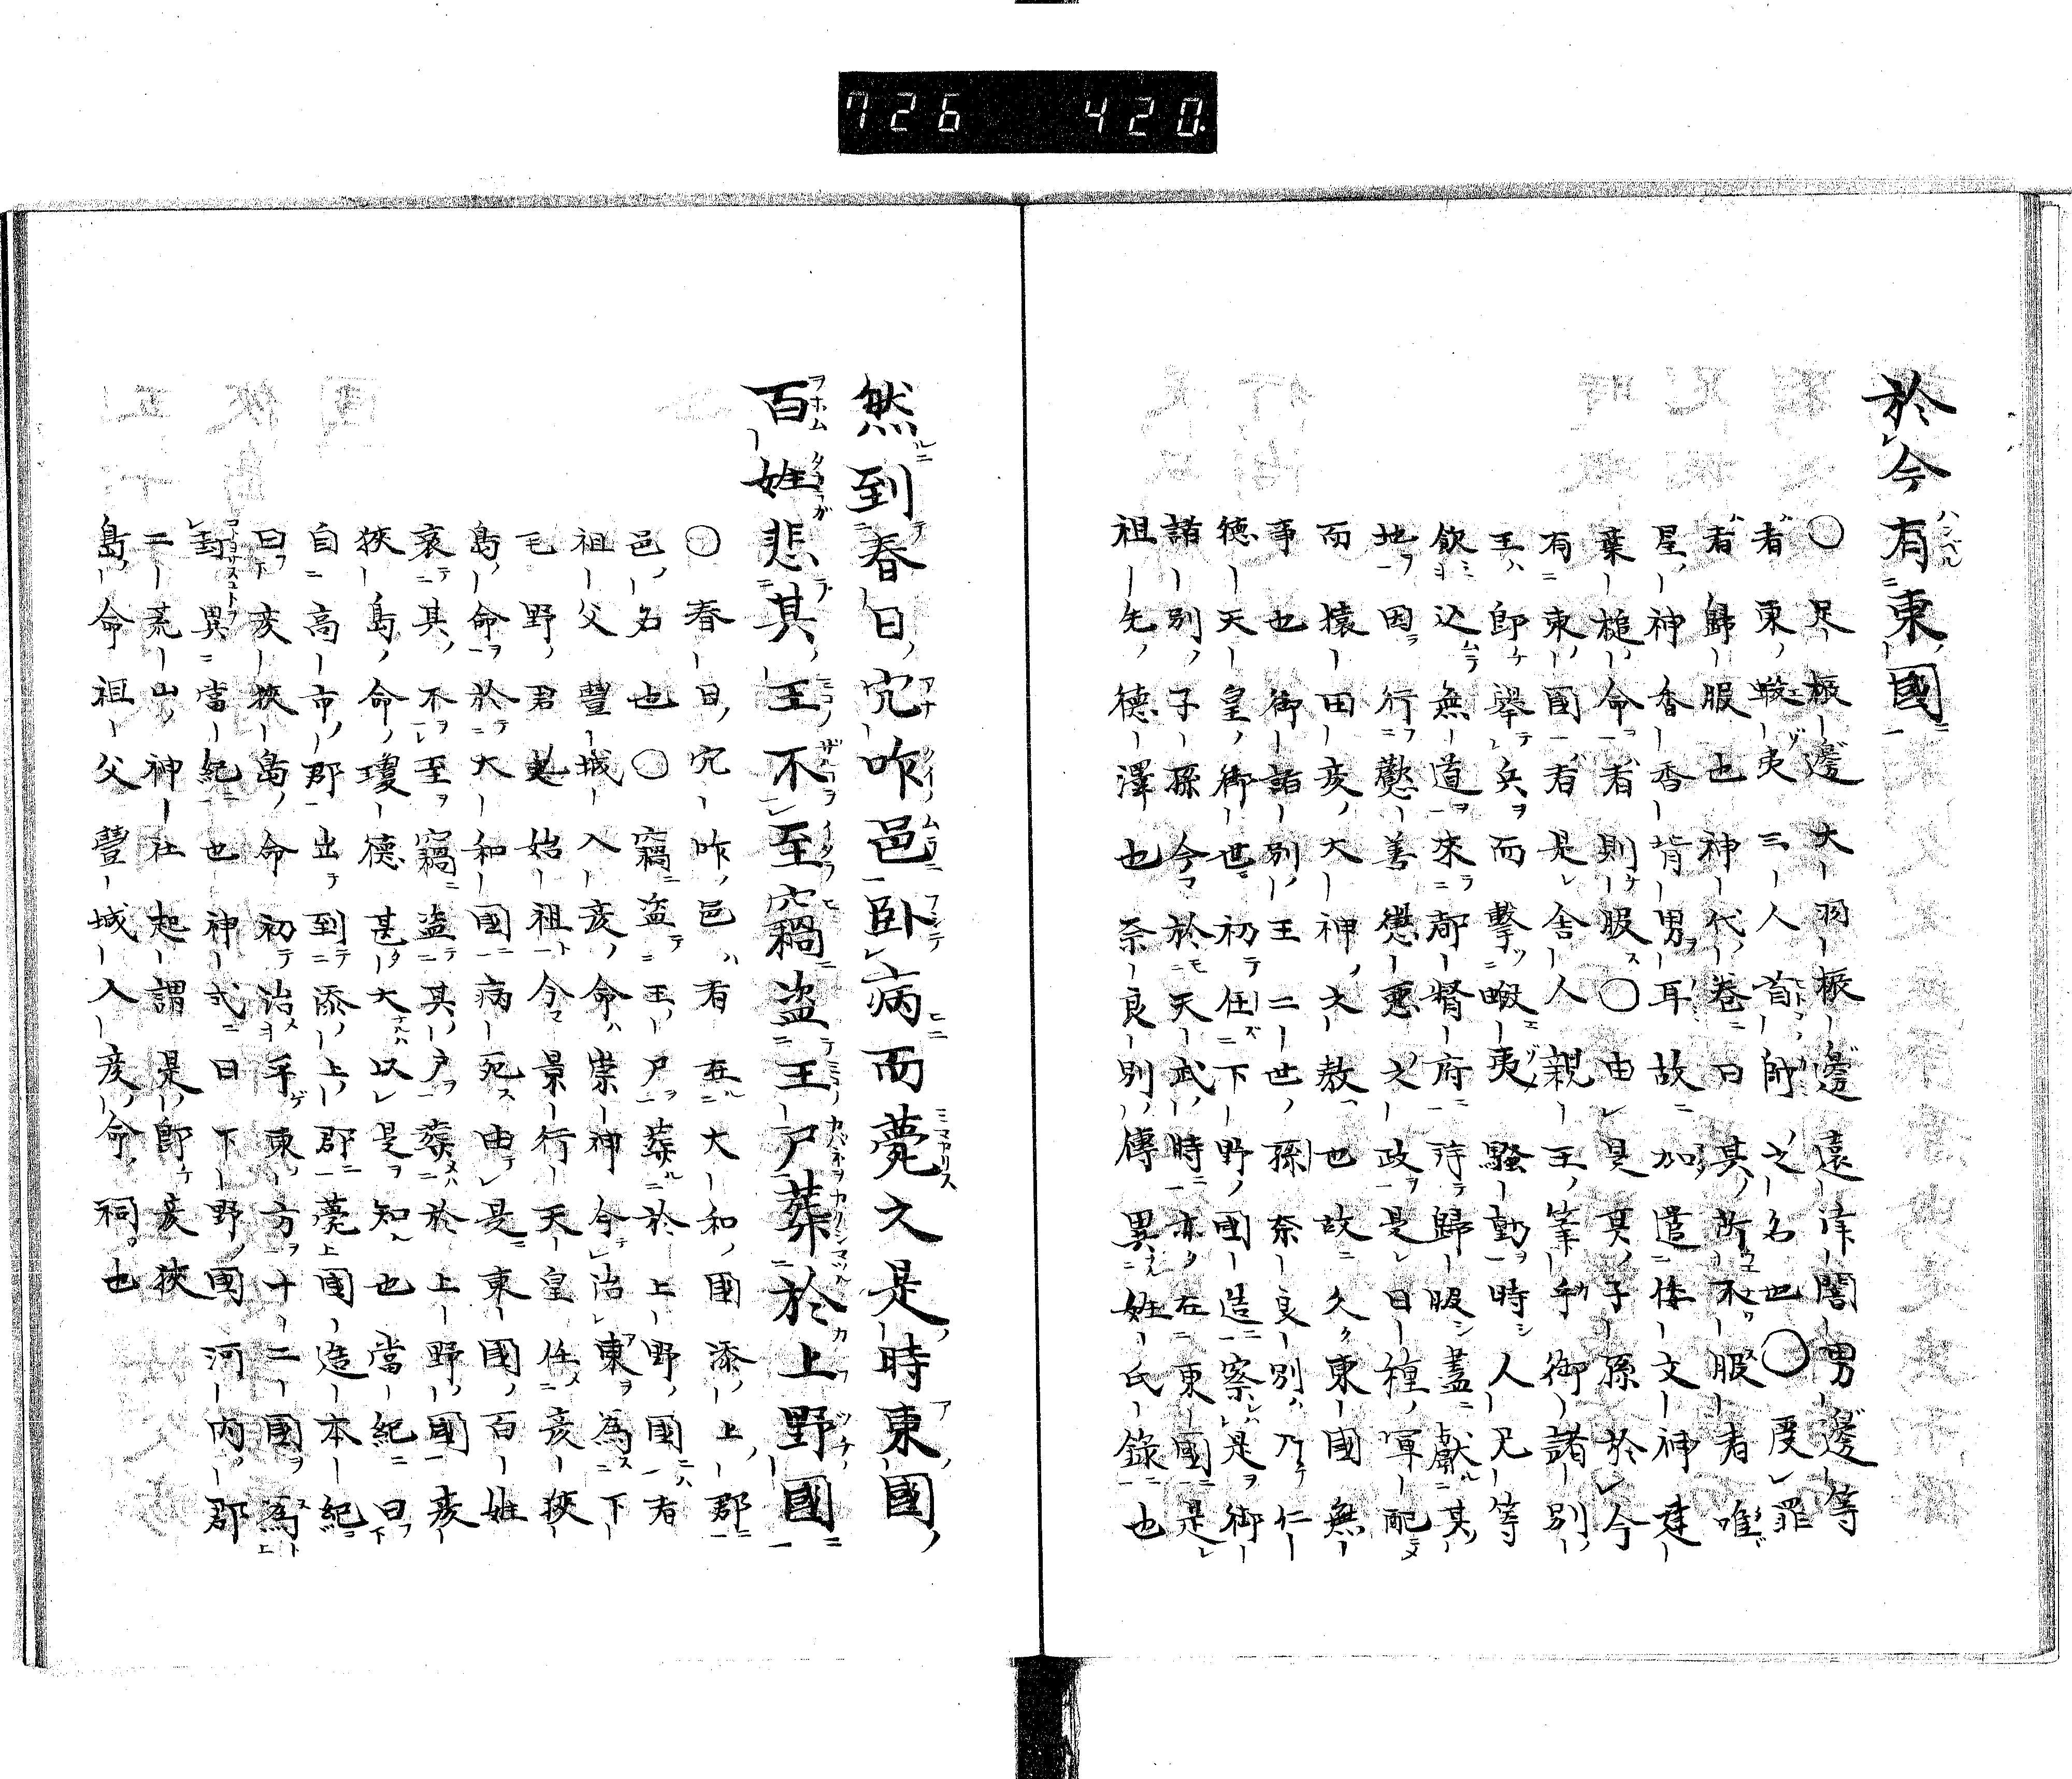 726 420.
於今有東國
〇足振邊大羽振邊遠津闇男邊等
者東蝦夷三人首帥之名也〇受罪
者歸服也神代卷曰其所不服者唯
星神香香背男耳故加遣倭文神建
葉槌命者則服〇由是其子孫於今
有東國者是舎人親王筆乎御諸別
王即擧兵而擊蝦夷騷動時人兄等
飲込無道來都督府詩歸服蓋獻其
地因行歡善懲悪之政是曰種 配
而猿田彦大神之敖也故久東國無
事也御諸別王二世孫奈良別乃仁
德天皇御世初任下野國造察是御
諸別子孫今於天武時亦在東國是
祖先德澤也奈良別傳異姓氏錄也
然到春日穴咋邑臥病而薨之是時東國
百姓悲其王不至竊盗王尸葬於上野國
〇春日穴咋邑有在大和國添上郡
邑名也〇竊盗王尸葬於上野國者
祖父豐城入彦命崇神令治東為下
毛野君 始祖今景行天皇任彦狹
島命於大和國病死由是東國百姓
哀其不至竊盗其尸葬於上野國彦
狹島命瓊德甚大以是知也當紀曰
自高市郡出到添上郡薨上國造本紀
曰彦狹島命初治平東方十二國為
封異當紀也神式曰下野國河内郡
二荒山神社起謂是即彦狹
島命祖父豐城入彦命祠也